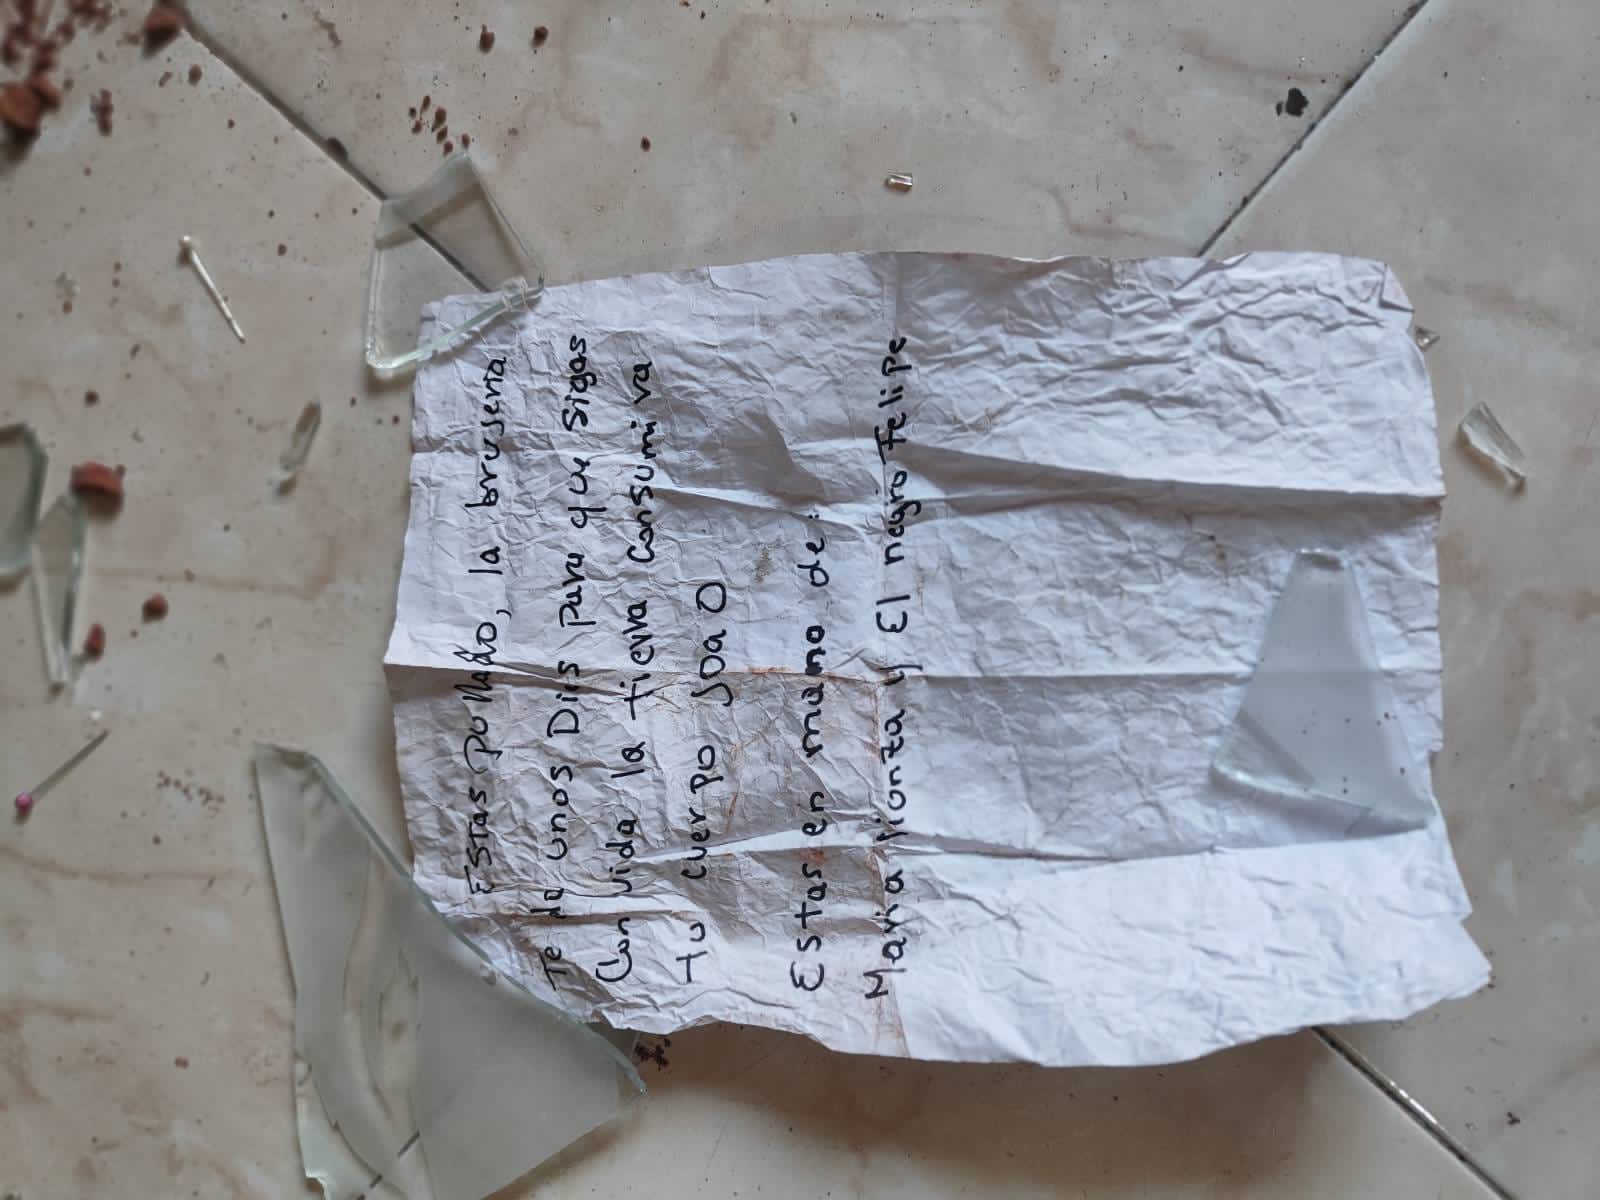 Estas pullado, la brujeria
Te da unos Dias para que sigas
Con vida la tierra consumi va
tu cuerpo Joao
Estas en mano de:
Maria lionza y El negro Felipe